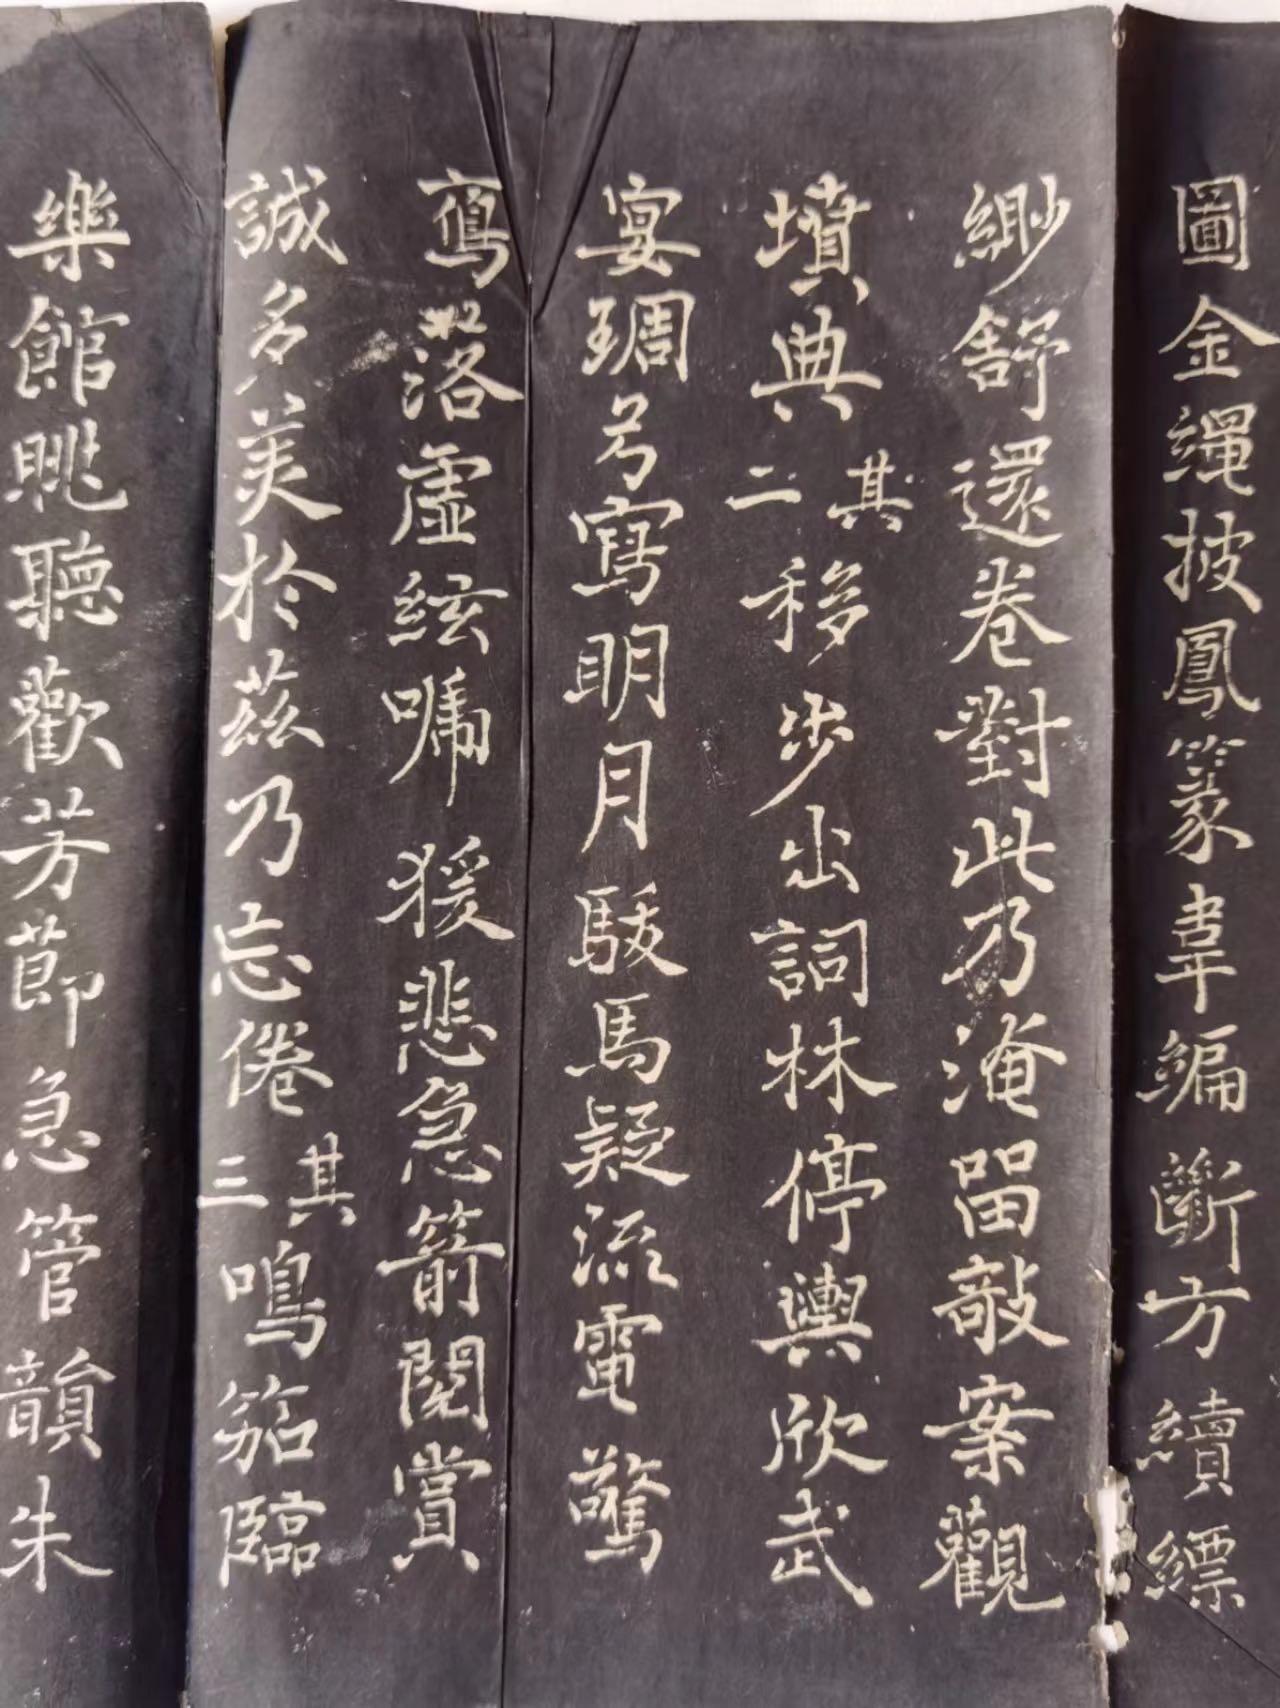 圖金繩披鳳篆韋編斷方續縹
緲舒還卷對此乃淹留敧案觀
墳典其二移步出詞林停輿欣武
宴琱弓寫明月駿馬疑流電驚
鴈落虛絃嘷猨悲急箭閱賞
誠多美於茲乃忘倦其三鳴笳臨
樂館眺聽歡芳節急管韻朱